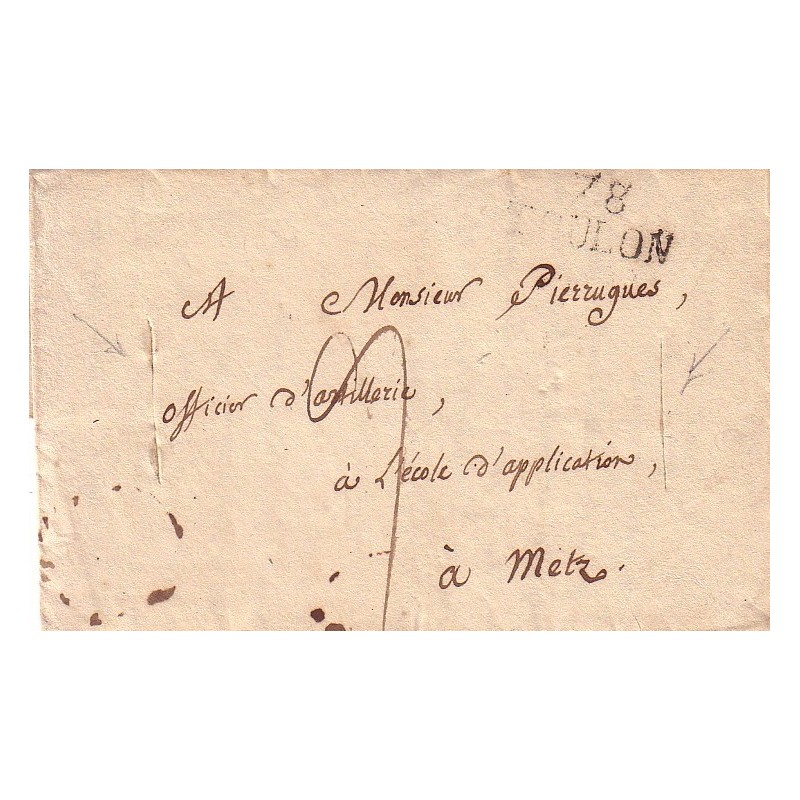 78
TOULON
A Monsieur Pierrugues,
officier d'artillerie,
à L'école d'application,
à Metz.